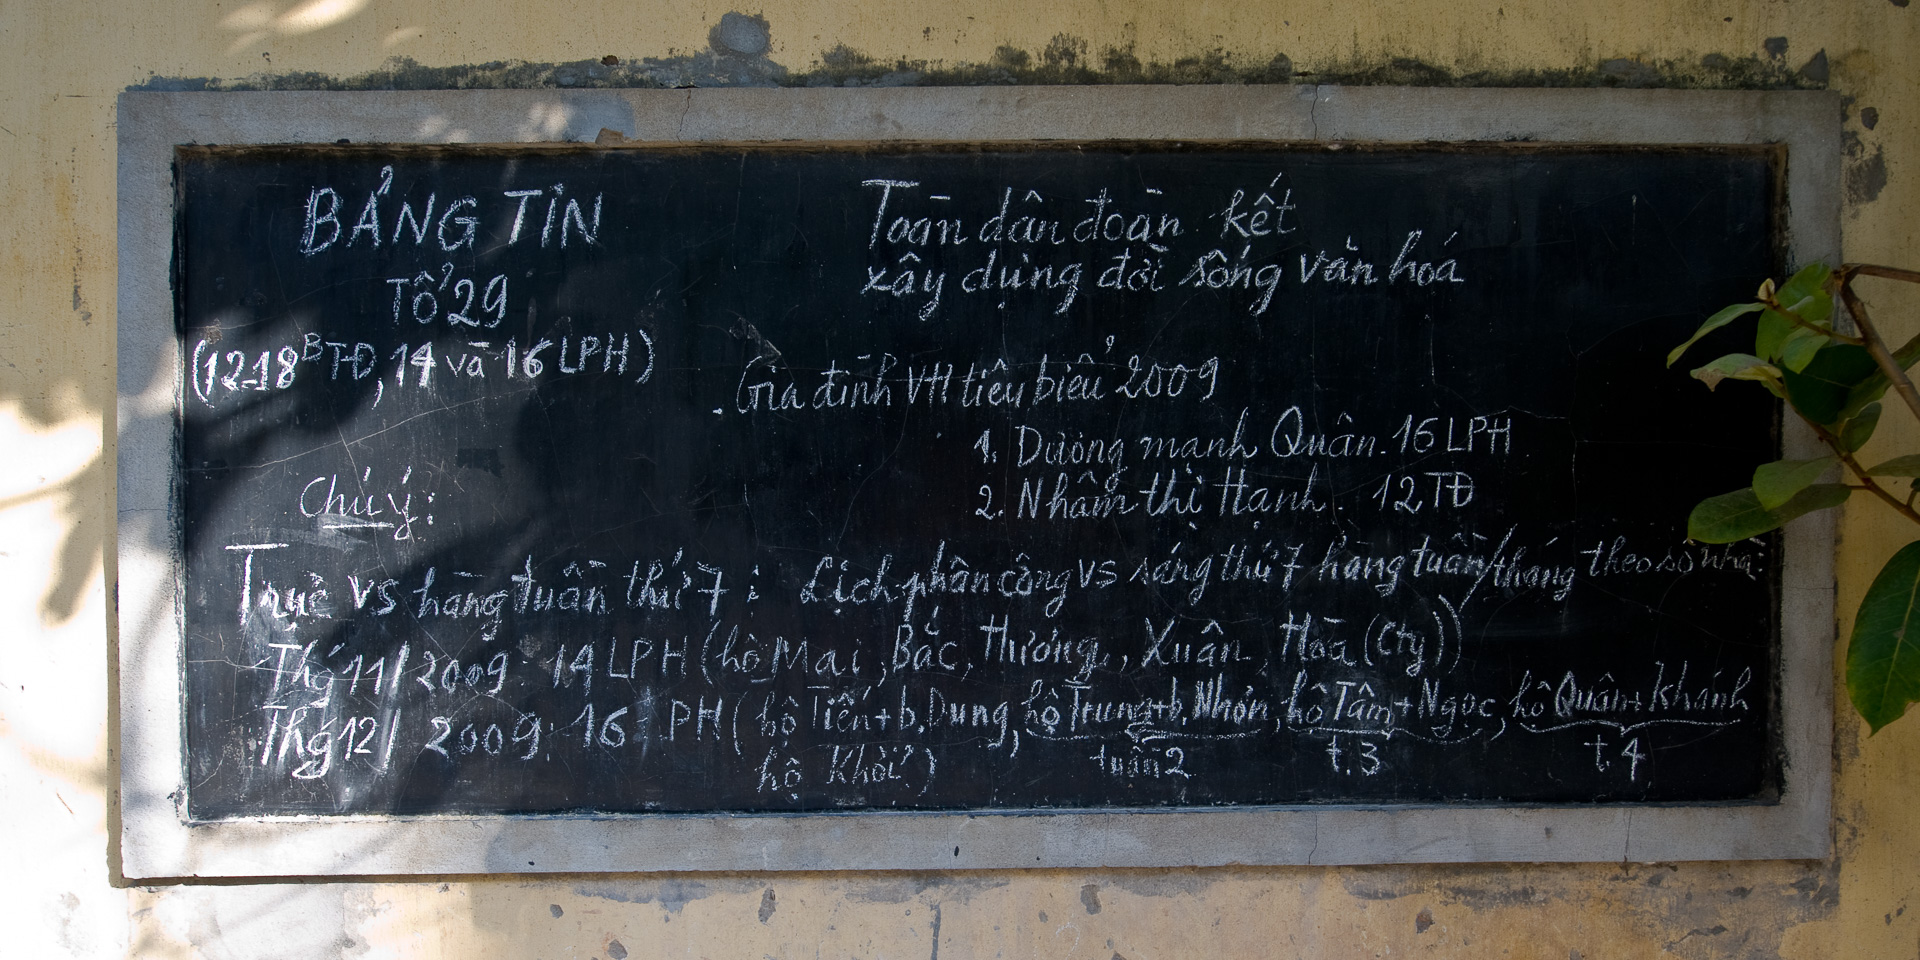 BẢNG TIN
TỔ 29
(12-18ᴮ TĐ, 14 và 16 LPH)
Toàn dân đoàn kết
xây dựng đời sống văn hoá
. Gia đình VH tiêu biểu 2009
1. Dương mạnh Quân. 16 LPH
2. Nhâm thị Hạnh. 12 TĐ
Chú ý:
Trực vs hàng tuần thứ 7 : Lịch phân công vs sáng thứ 7 hàng tuần/tháng theo số nhà:
Thg 11/2009: 14 LPH (hộ Mai, Bắc, Hương, Xuân, Hoà (Cty))
Thg 12/2009: 16 LPH (hộ Tiến+b.Dung, hộ Trung+b.Nhơn, hộ Tâm+Ngọc, hộ Quân+Khánh
hộ Khởi) tuần 2 t.3 t.4